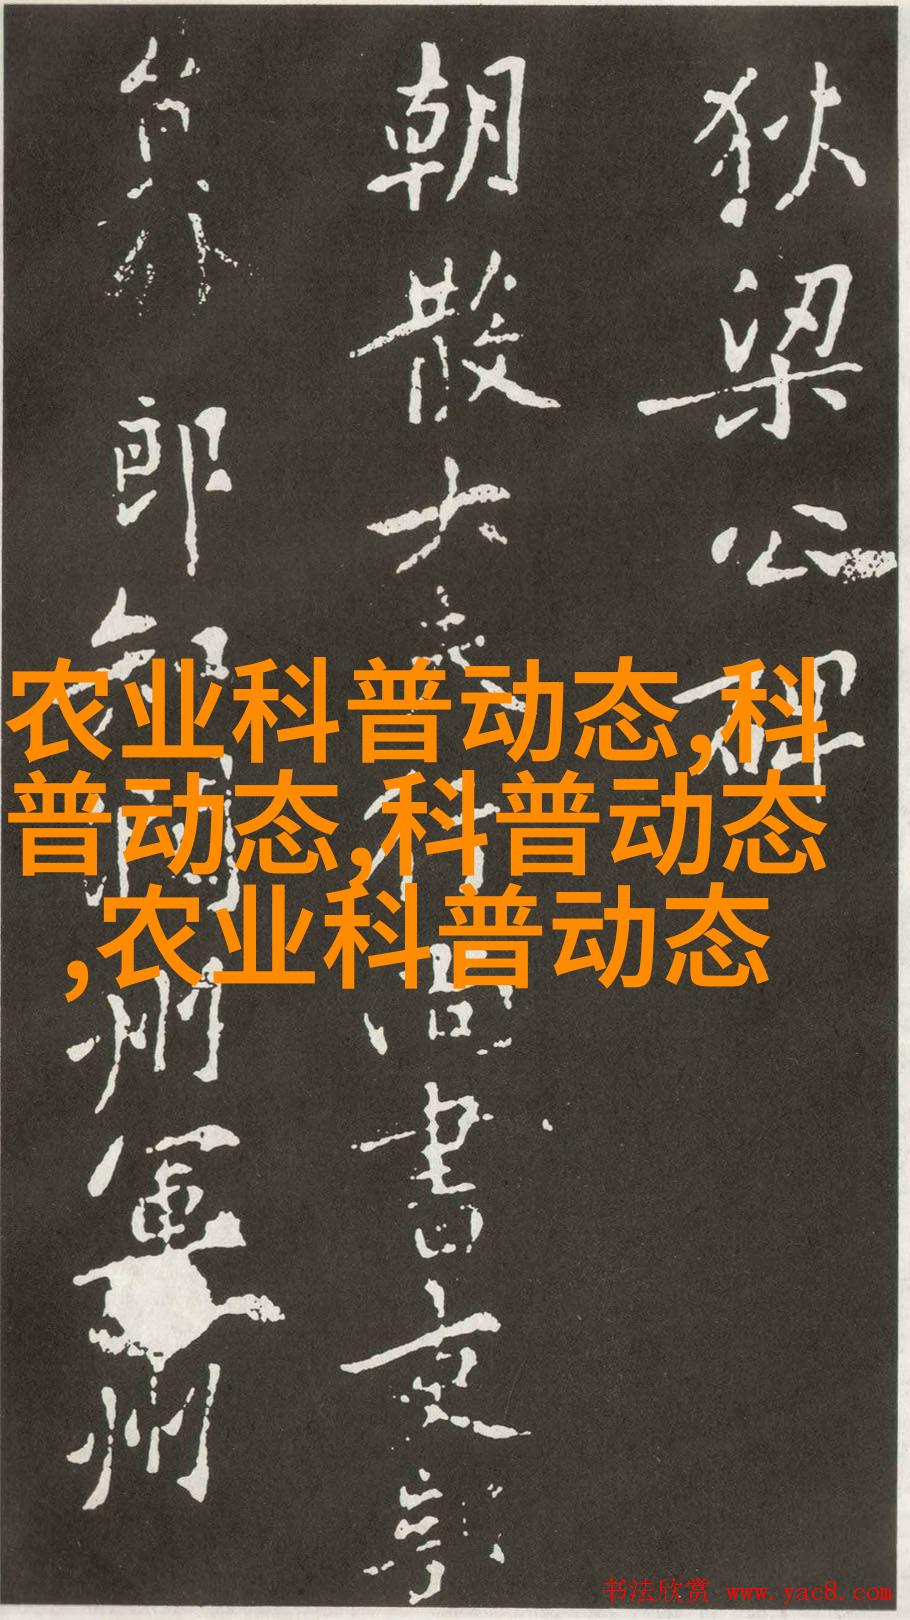 狄梁公碑
朝散大夫行尚書吏部
員外郎知潤州軍州
农业科普动态,科
普动态,科普动态
,农业科普动态
书法欣赏 www.yac8.com